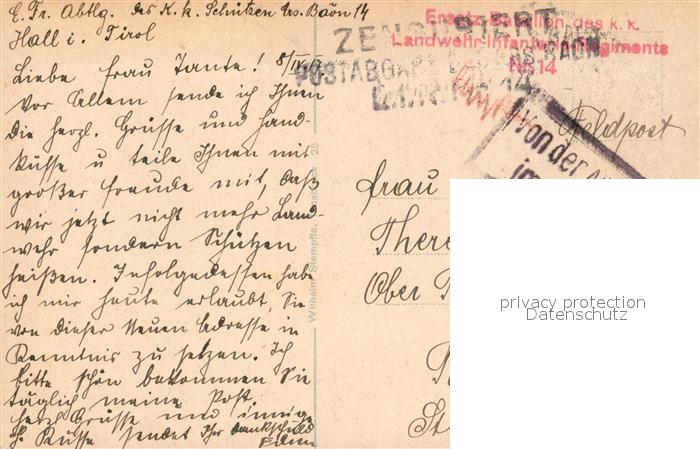 E. Fr. Abtlg. des K. k. Schützen Ers. Baōn 14
Hall i. Tirol
8/IV
Liebe Frau Tante!
Vor Allem sende ich Ihnen
die herzl. Grüsse und Hand-
küsse u teile Ihnen mit
großer Freude mit, daß
wir jetzt nicht mehr Land-
wehr sondern Schützen
heißen. Infolgedessen habe
ich mir heute erlaubt, Sie
von dieser Neuen Adresse in
Kenntnis zu setzen. Ich
bitte schön bekommen Sie
täglich meine Post.
Herzl Grüsse und innige
Küsse sendet Ihr dankschuld
Wilhelm Stempfle, 25
ZENSURIERT
Ersatz-Bataillon des k. k.
Landwehr-Infanterie-Regiments
Nr. 14
POSTABGABE
Feldpost
von der
im
Frau
There
Ober
St
privacy protection
Datenschutz